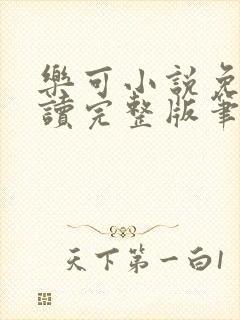 樂可小說免
讀完整版筆
天下第一白1